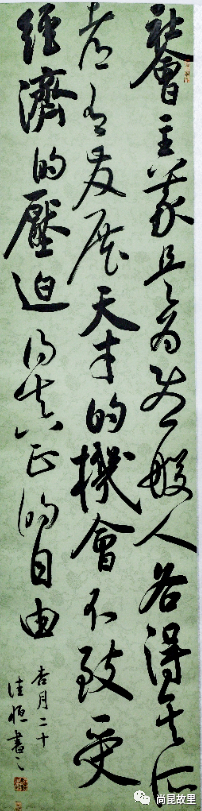 社會主義是為使一般人各得其所
都有發展天才的機會不致受
經濟的壓迫得真正的自由
杏月二十
佳恒書之
尚昆故里